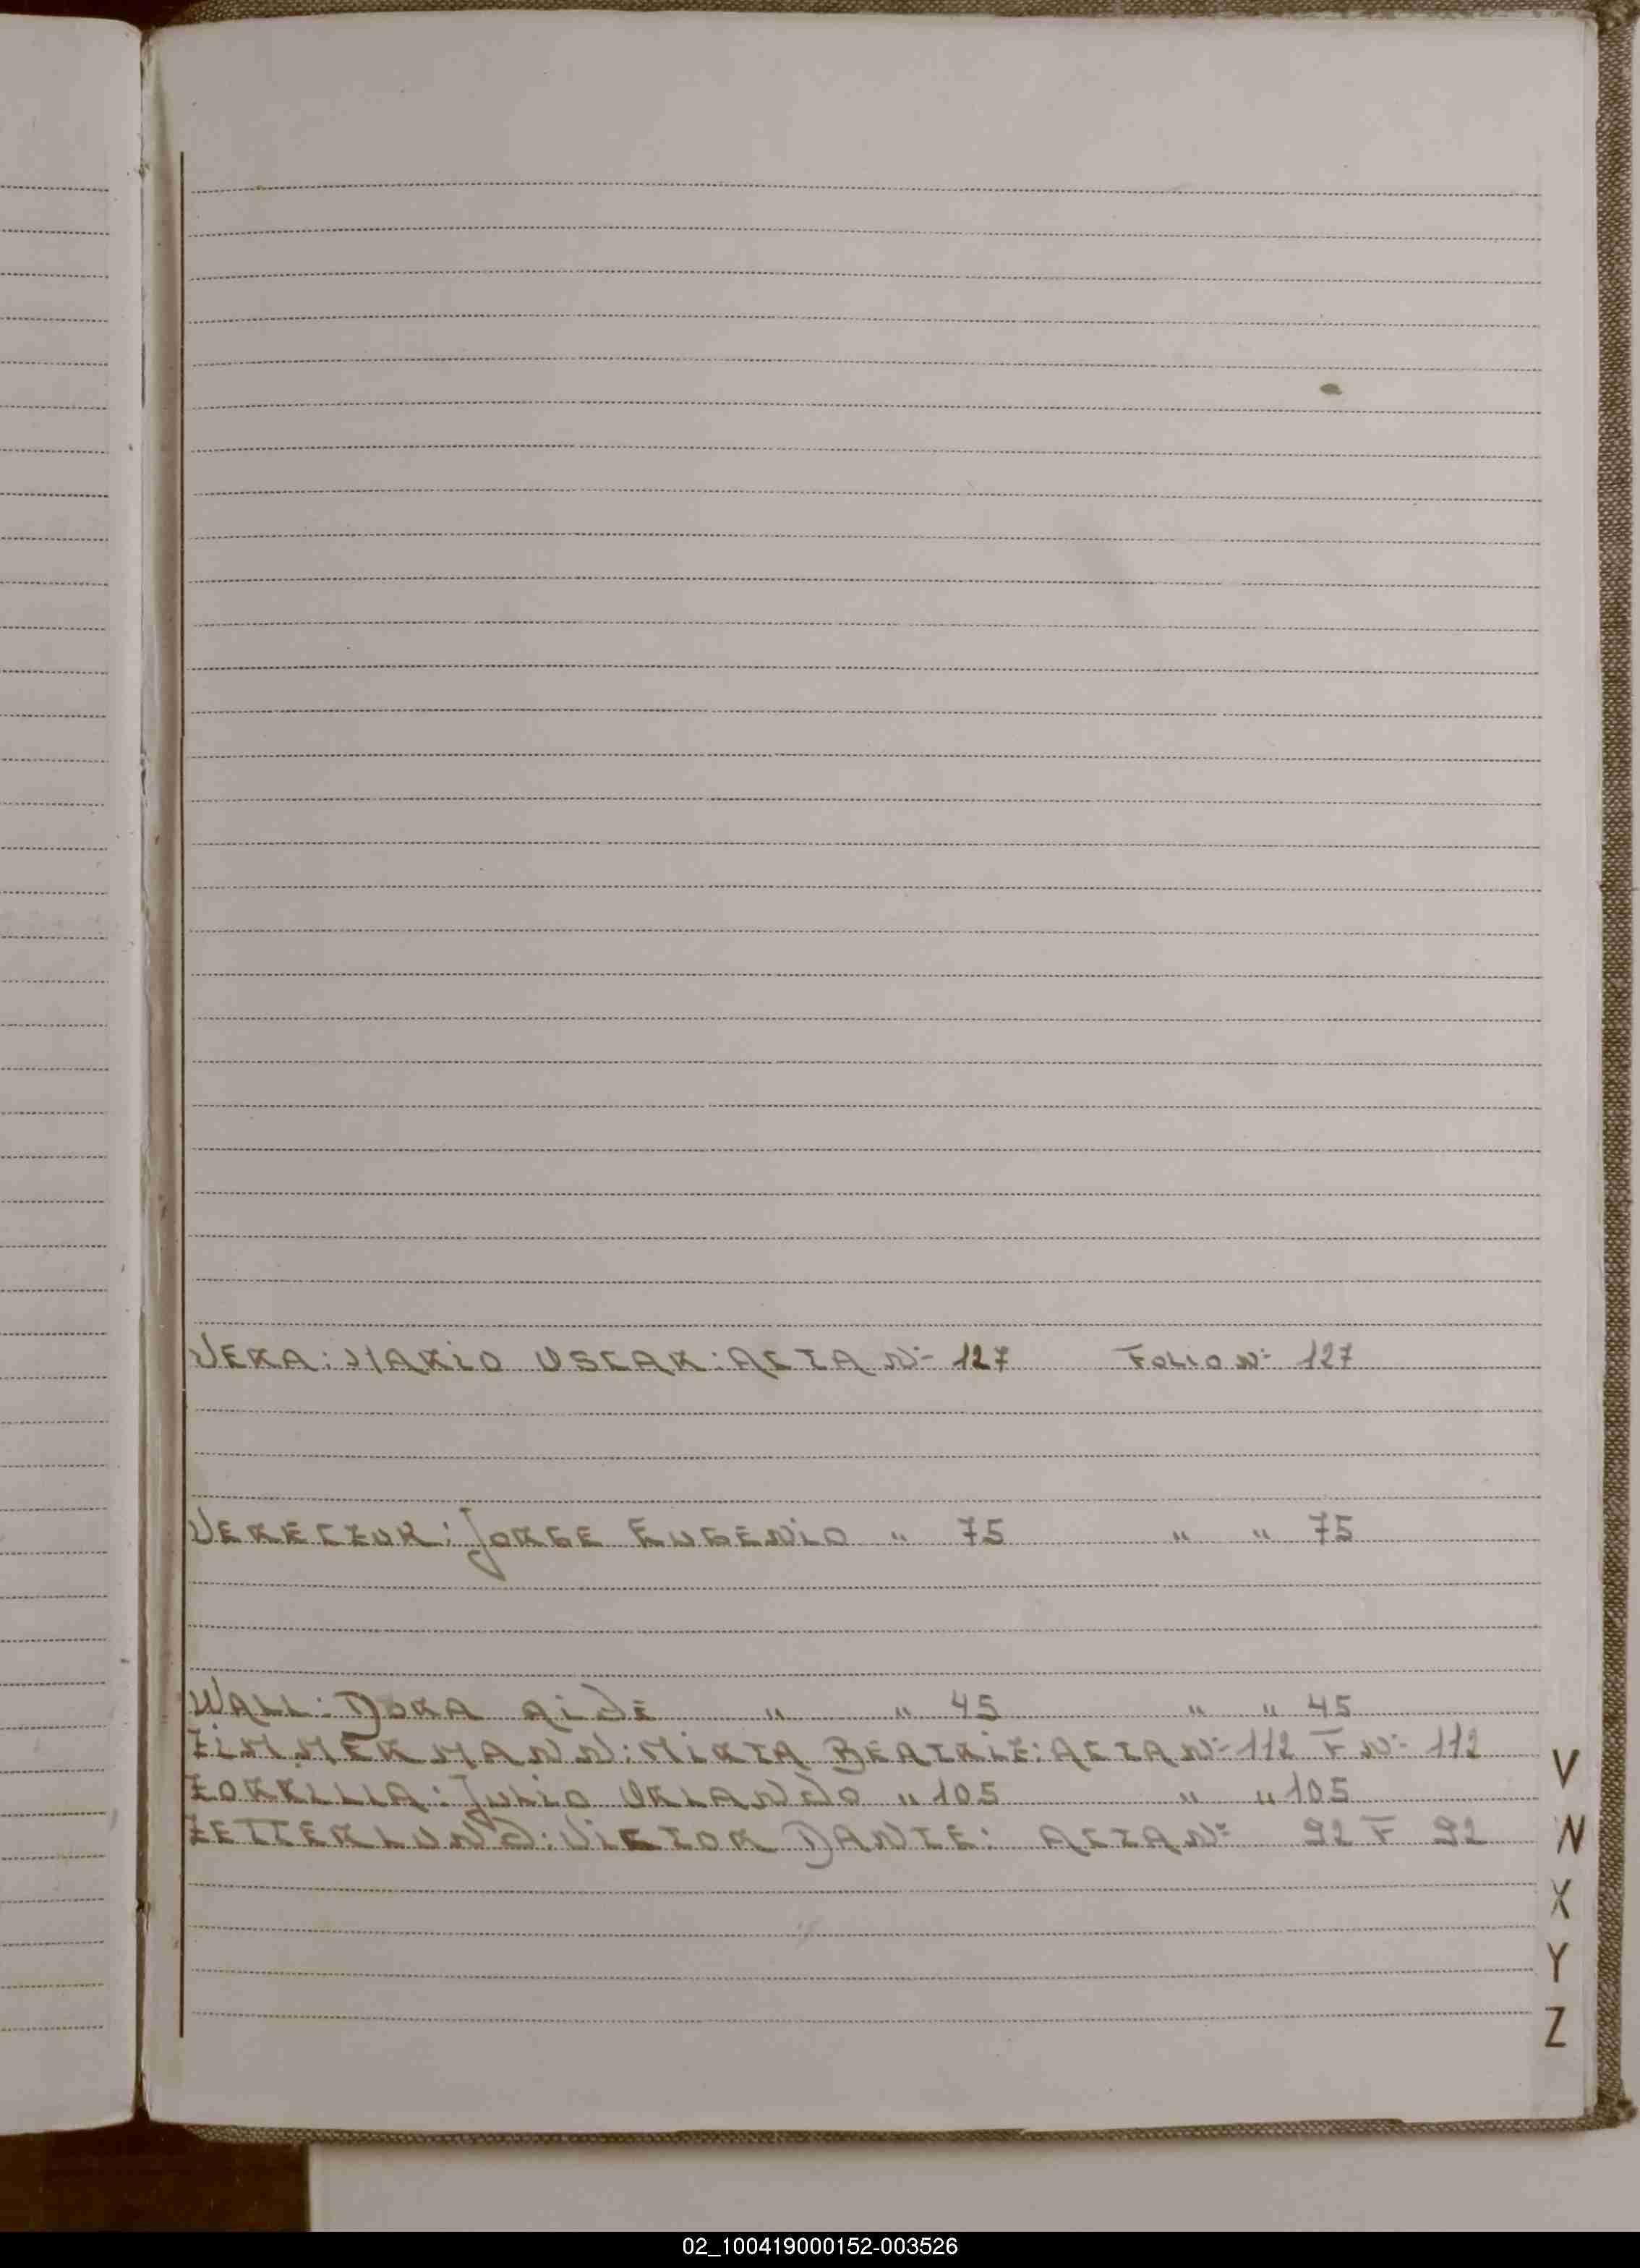 VERA: MARIO OSCAR: ACTA Nº 127 FOLIO Nº 127
VERECZUK: JORGE EUGENIO " 75 " " 75
WALL: DORA AIDE " " 45 " " 45
ZIMMERMANN: MIRTA BEATRIZ: ACTA Nº 112 F Nº 112
ZORRILLA: JULIO ORLANDO " 105 " " 105
ZETTERLUND: VICTOR DANTE: ACTA Nº 92 F 92
V
W
X
Y
Z
02_100419000152-003526